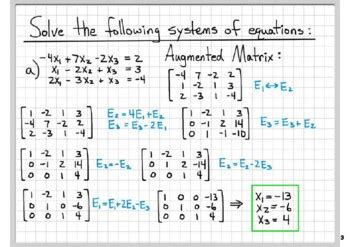 Solve the following systems of equations:
a) -4x₁ + 7x₂ - 2x₃ = 2
x₁ - 2x₂ + x₃ = 3
2x₁ - 3x₂ + x₃ = -4
Augmented Matrix:
[-4 7 -2 2]
[1 -2 1 3]
[2 -3 1 -4]
E₁↔E₂
[1 -2 1 3]
[-4 7 -2 2]
[2 -3 1 -4]
E₂=4E₁+E₂
E₃=E₃-2E₁
[1 -2 1 3]
[0 -1 2 14]
[0 1 -1 -10]
E₃=E₃+E₂
[1 -2 1 3]
[0 -1 2 14]
[0 0 1 4]
E₂=-E₂
[1 -2 1 3]
[0 1 2 -14]
[0 0 1 4]
E₂=E₂-2E₃
[1 -2 1 3]
[0 1 0 -6]
[0 0 1 4]
E₁=E₁+2E₂-E₃
[1 0 0 -13]
[0 1 0 -6]
[0 0 1 4]
⇒
x₁=-13
x₂=-6
x₃=4